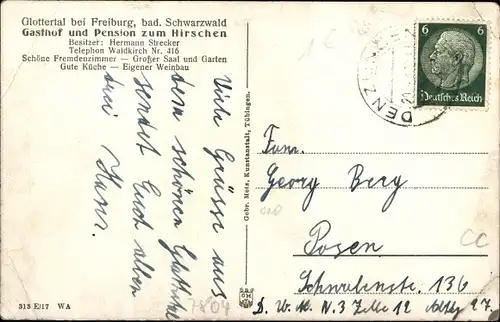 Glottertal bei Freiburg, bad. Schwarzwald
Gasthof und Pension zum Hirschen
Besitzer: Hermann Strecker
Telephon Waldkirch Nr. 416
Schöne Fremdenzimmer — Großer Saal und Garten
Gute Küche — Eigener Weinbau
Viele Grüsse aus
dem schönen Glottertal
sendet Euch allen
Hans.
Gebr. Metz, Kunstanstalt, Tübingen.
6 6
Deutsches Reich
DENZ
1 €
Fam.
Georg Berg
Posen
Schwabenstr. 136
N.3 Zelle 12
CC
7804
313 E/17 WA